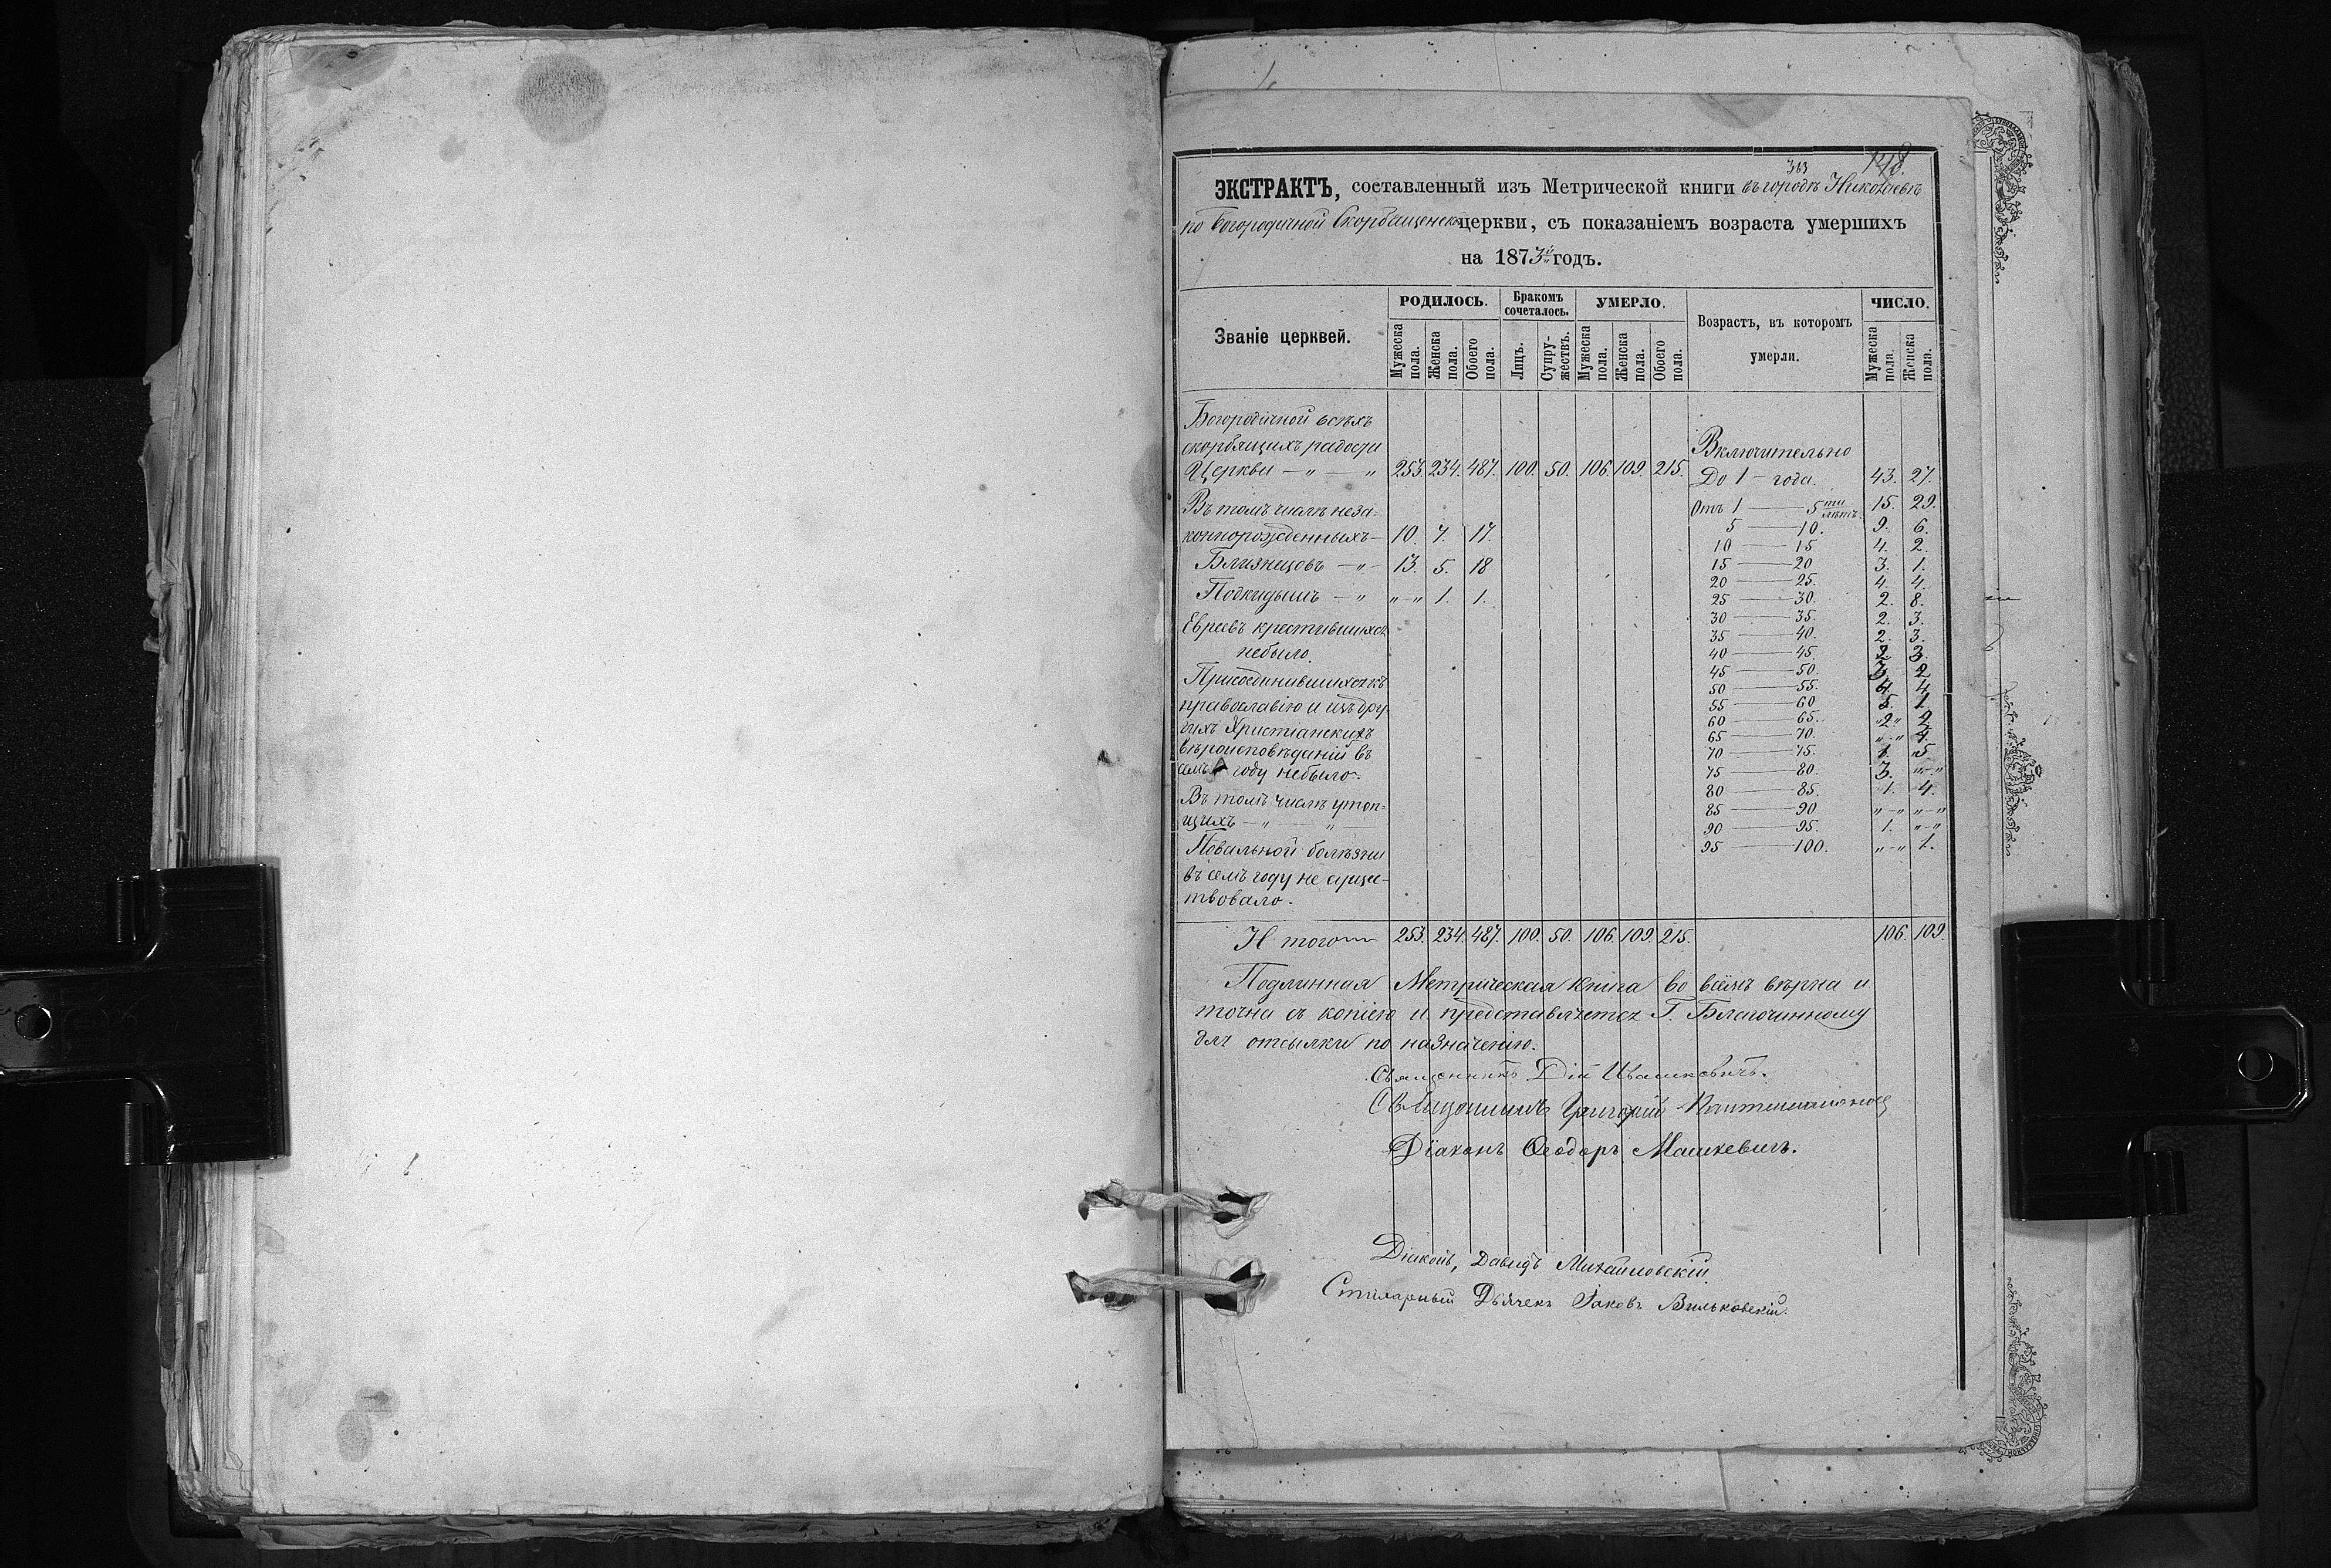 363 148.
ЭКСТРАКТЪ, составленный изъ Метрической книги въ городѣ Николаевѣ
по Богородичной Скорбященск церкви, съ показаніемъ возраста умершихъ
на 1873й годъ.
Званіе церквей. РОДИЛОСЬ. Бракомъ сочеталось. УМЕРЛО. Возрастъ, въ которомъ умерли. ЧИСЛО.
Мужеска пола. Женска пола. Обоего пола. Лицъ. Супружествъ. Мужеска пола. Женска пола. Обоего пола. Мужеска пола. Женска пола.
Богородичной всѣхъ
скорбящихъ радости
Церкви — „ — „ 253. 234. 487. 100. 50. 106. 109. 215.
Въ томъ числѣ неза=
коннорожденныхъ — 10. 7. 17.
Близнецовъ — „ — 13. 5. 18
Подкидыш — „ „ — „ 1. 1.
Евреевъ крестившихся
небыло.
Присоединившихся къ
православію и изъ дру
гихъ Христіанскихъ
вѣроисповѣданій въ
семъ году небыло.
Въ томъ числѣ утоп=
щихъ — „ — „ —
Повальной болѣзни
въ семъ году не сущес=
твовало.
Включительно
До 1 — года. 43. 27.
Отъ 1 — 5ти лѣтъ. 15. 29.
5 — 10. 9. 6.
10 — 15 4. 2.
15 — 20 3. 1.
20 — 25. 4. 4.
25 — 30. 2. 8.
30 — 35. 2. 3.
35 — 40. 2. 3.
40 — 45. 2. 3.
45 — 50. 3. 2
50 — 55. 4. 4.
55 — 60 5. 1
60 — 65. „2„ 2
65 — 70. „ — „ 4.
70 — 75. 1. 5.
75 — 80. 3. „ — „
80 — 85. 1. 4.
85 — 90 „ — „ „ — „
90 — 95. 1. „ — „
95 — 100. „ — „ 1.
Итого 253. 234. 487. 100. 50. 106. 109. 215. 106. 109.
Подлинная Метрическая книга во всемъ вѣрна и
точна съ копіею и представляется Г. Благочинному
для отсылки по назначенію.
Священникъ Дій Ивашкевичъ.
Священникъ Григорій
Діаконъ Ѳеодоръ Машкевичъ.
Діаконъ, Давидъ Михайловскій.
Стихарный Дьячекъ Іаковъ Вильковскій.